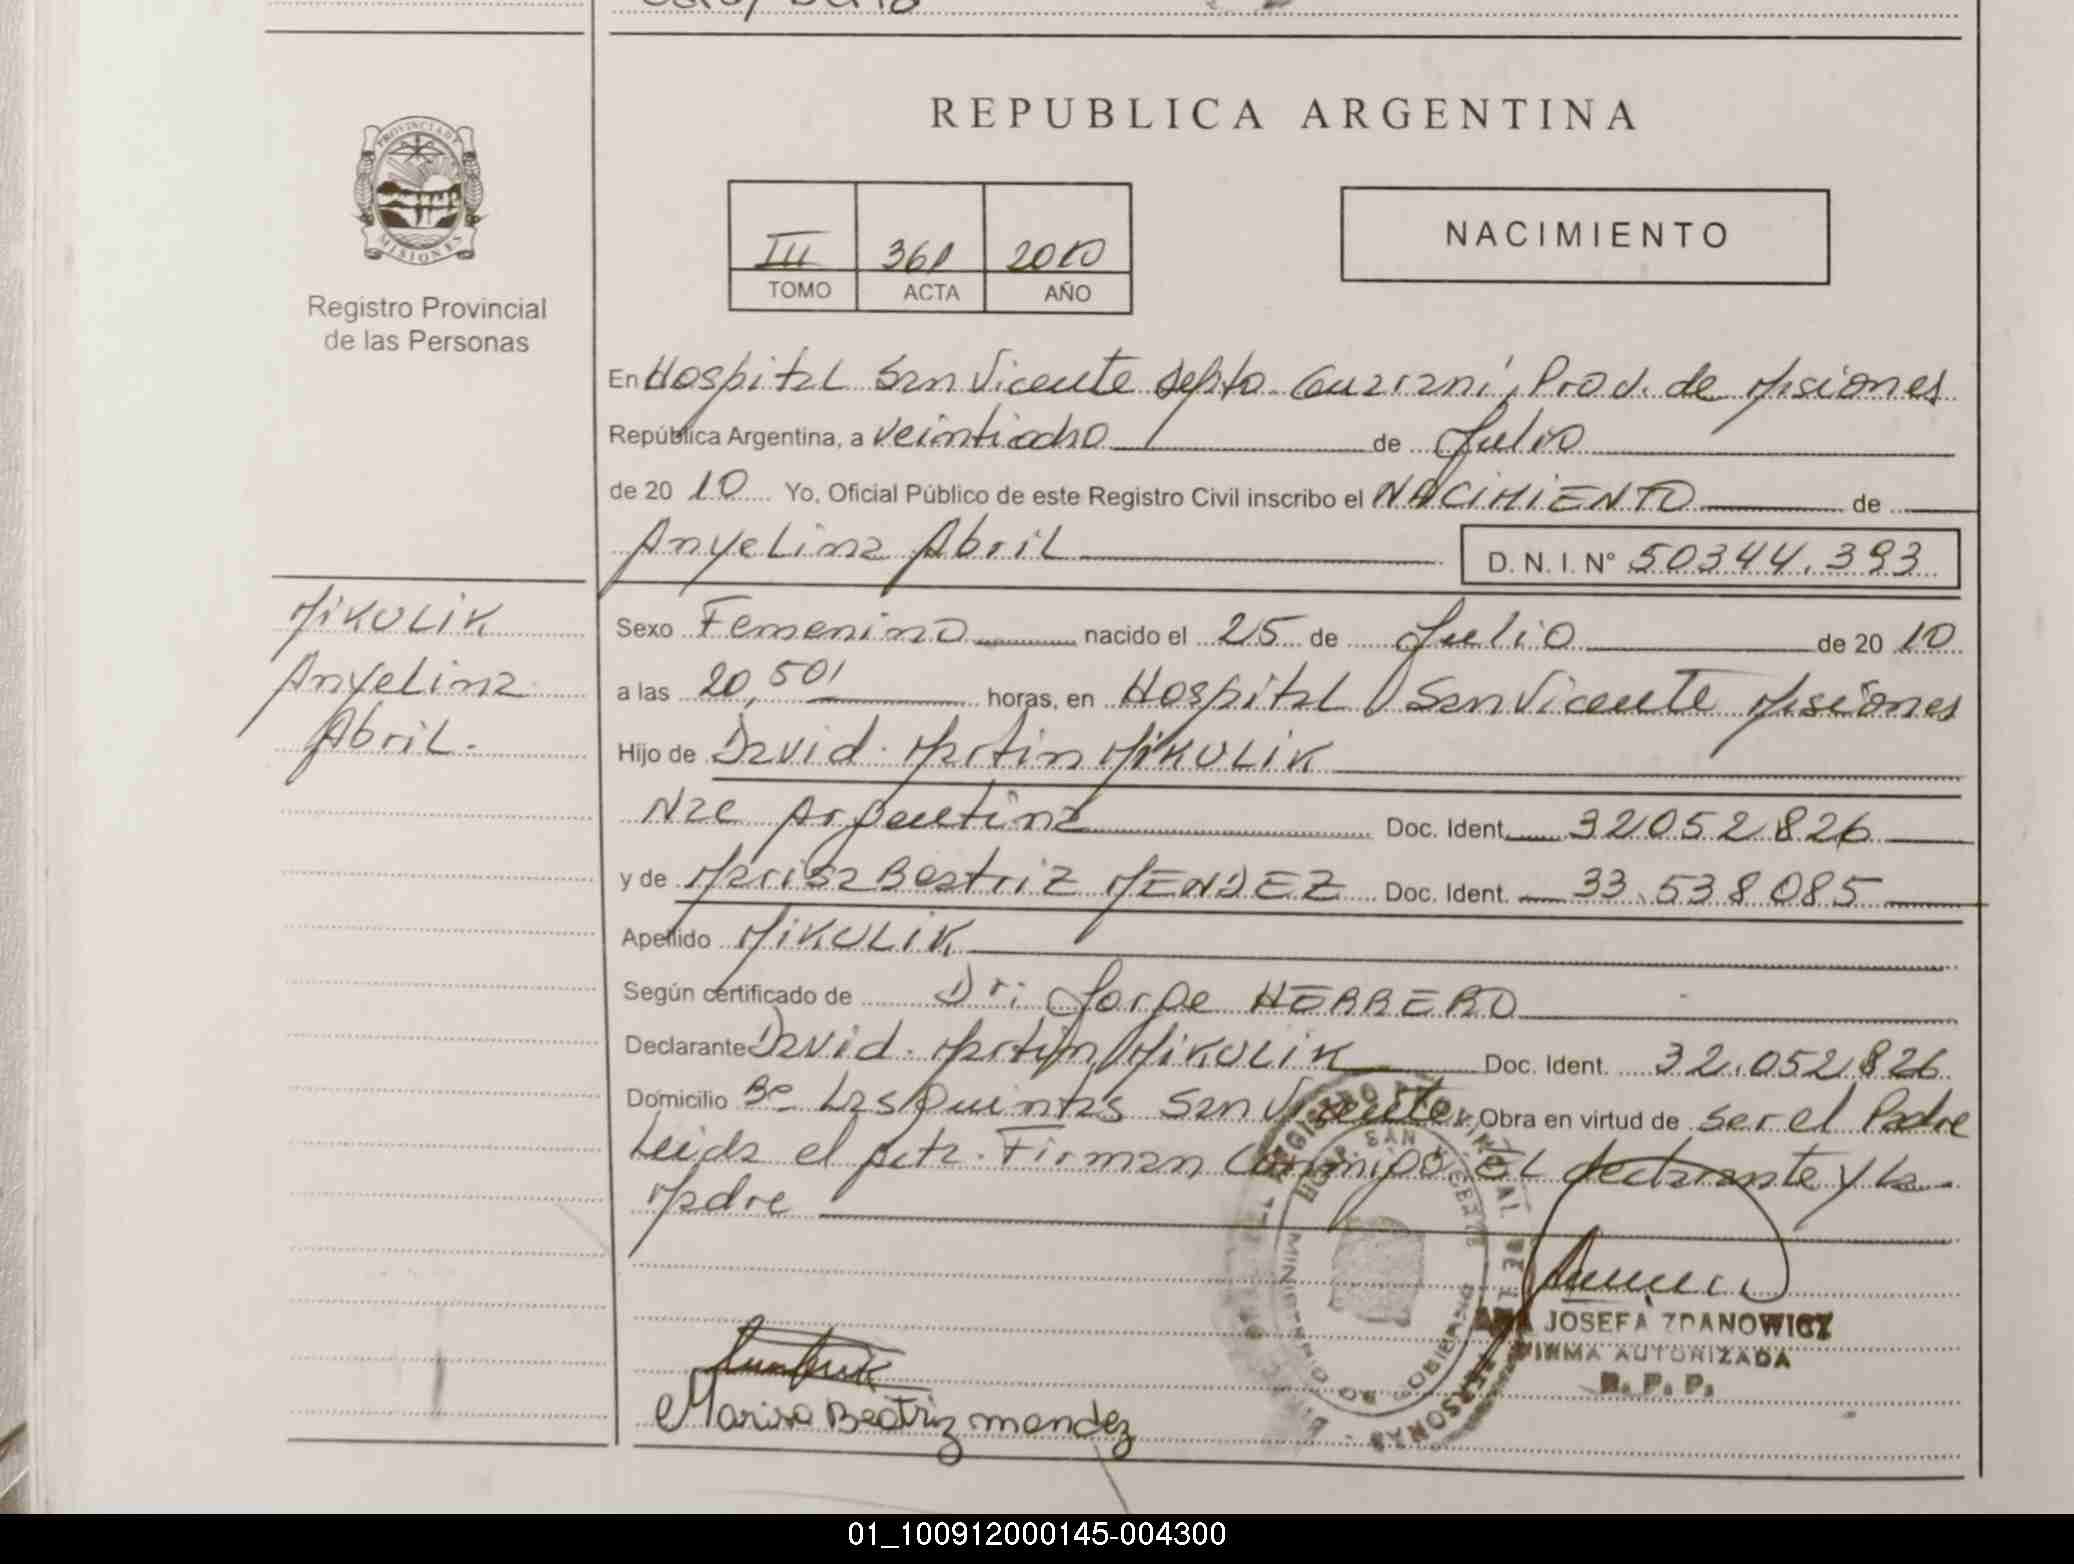 REPUBLICA ARGENTINA
PROVINCIA DE MISIONES
Registro Provincial
de las Personas
III 361 2010
TOMO ACTA AÑO
NACIMIENTO
En Hospital San Vicente depto. Guaraní, Prov. de Misiones
República Argentina, a veintiocho de Julio
de 20 10 Yo, Oficial Público de este Registro Civil inscribo el NACIMIENTO de
Anyelina Abril D. N. I. N° 50344.393
MIKULIK
Anyelina
Abril.
Sexo Femenino nacido el 25 de Julio de 20 10
a las 20,50' horas, en Hospital San Vicente Misiones
Hijo de David Martin MIKULIK
Nac Argentina Doc. Ident. 32052826
y de Marisa Beatriz MENDEZ Doc. Ident. 33.538085
Apellido MIKULIK
Según certificado de Dr: Jorge HERRERO
Declarante David Martin MIKULIK Doc. Ident. 32.052826
Domicilio Bº Las Quintas San Vicente. Obra en virtud de ser el Padre
Leida el acta. Firman Conmigo El declarante y la
Madre
ANA JOSEFA ZDANOWICZ
FIRMA AUTORIZADA
R. P. P.
Marisa Beatriz mendez
01_100912000145-004300